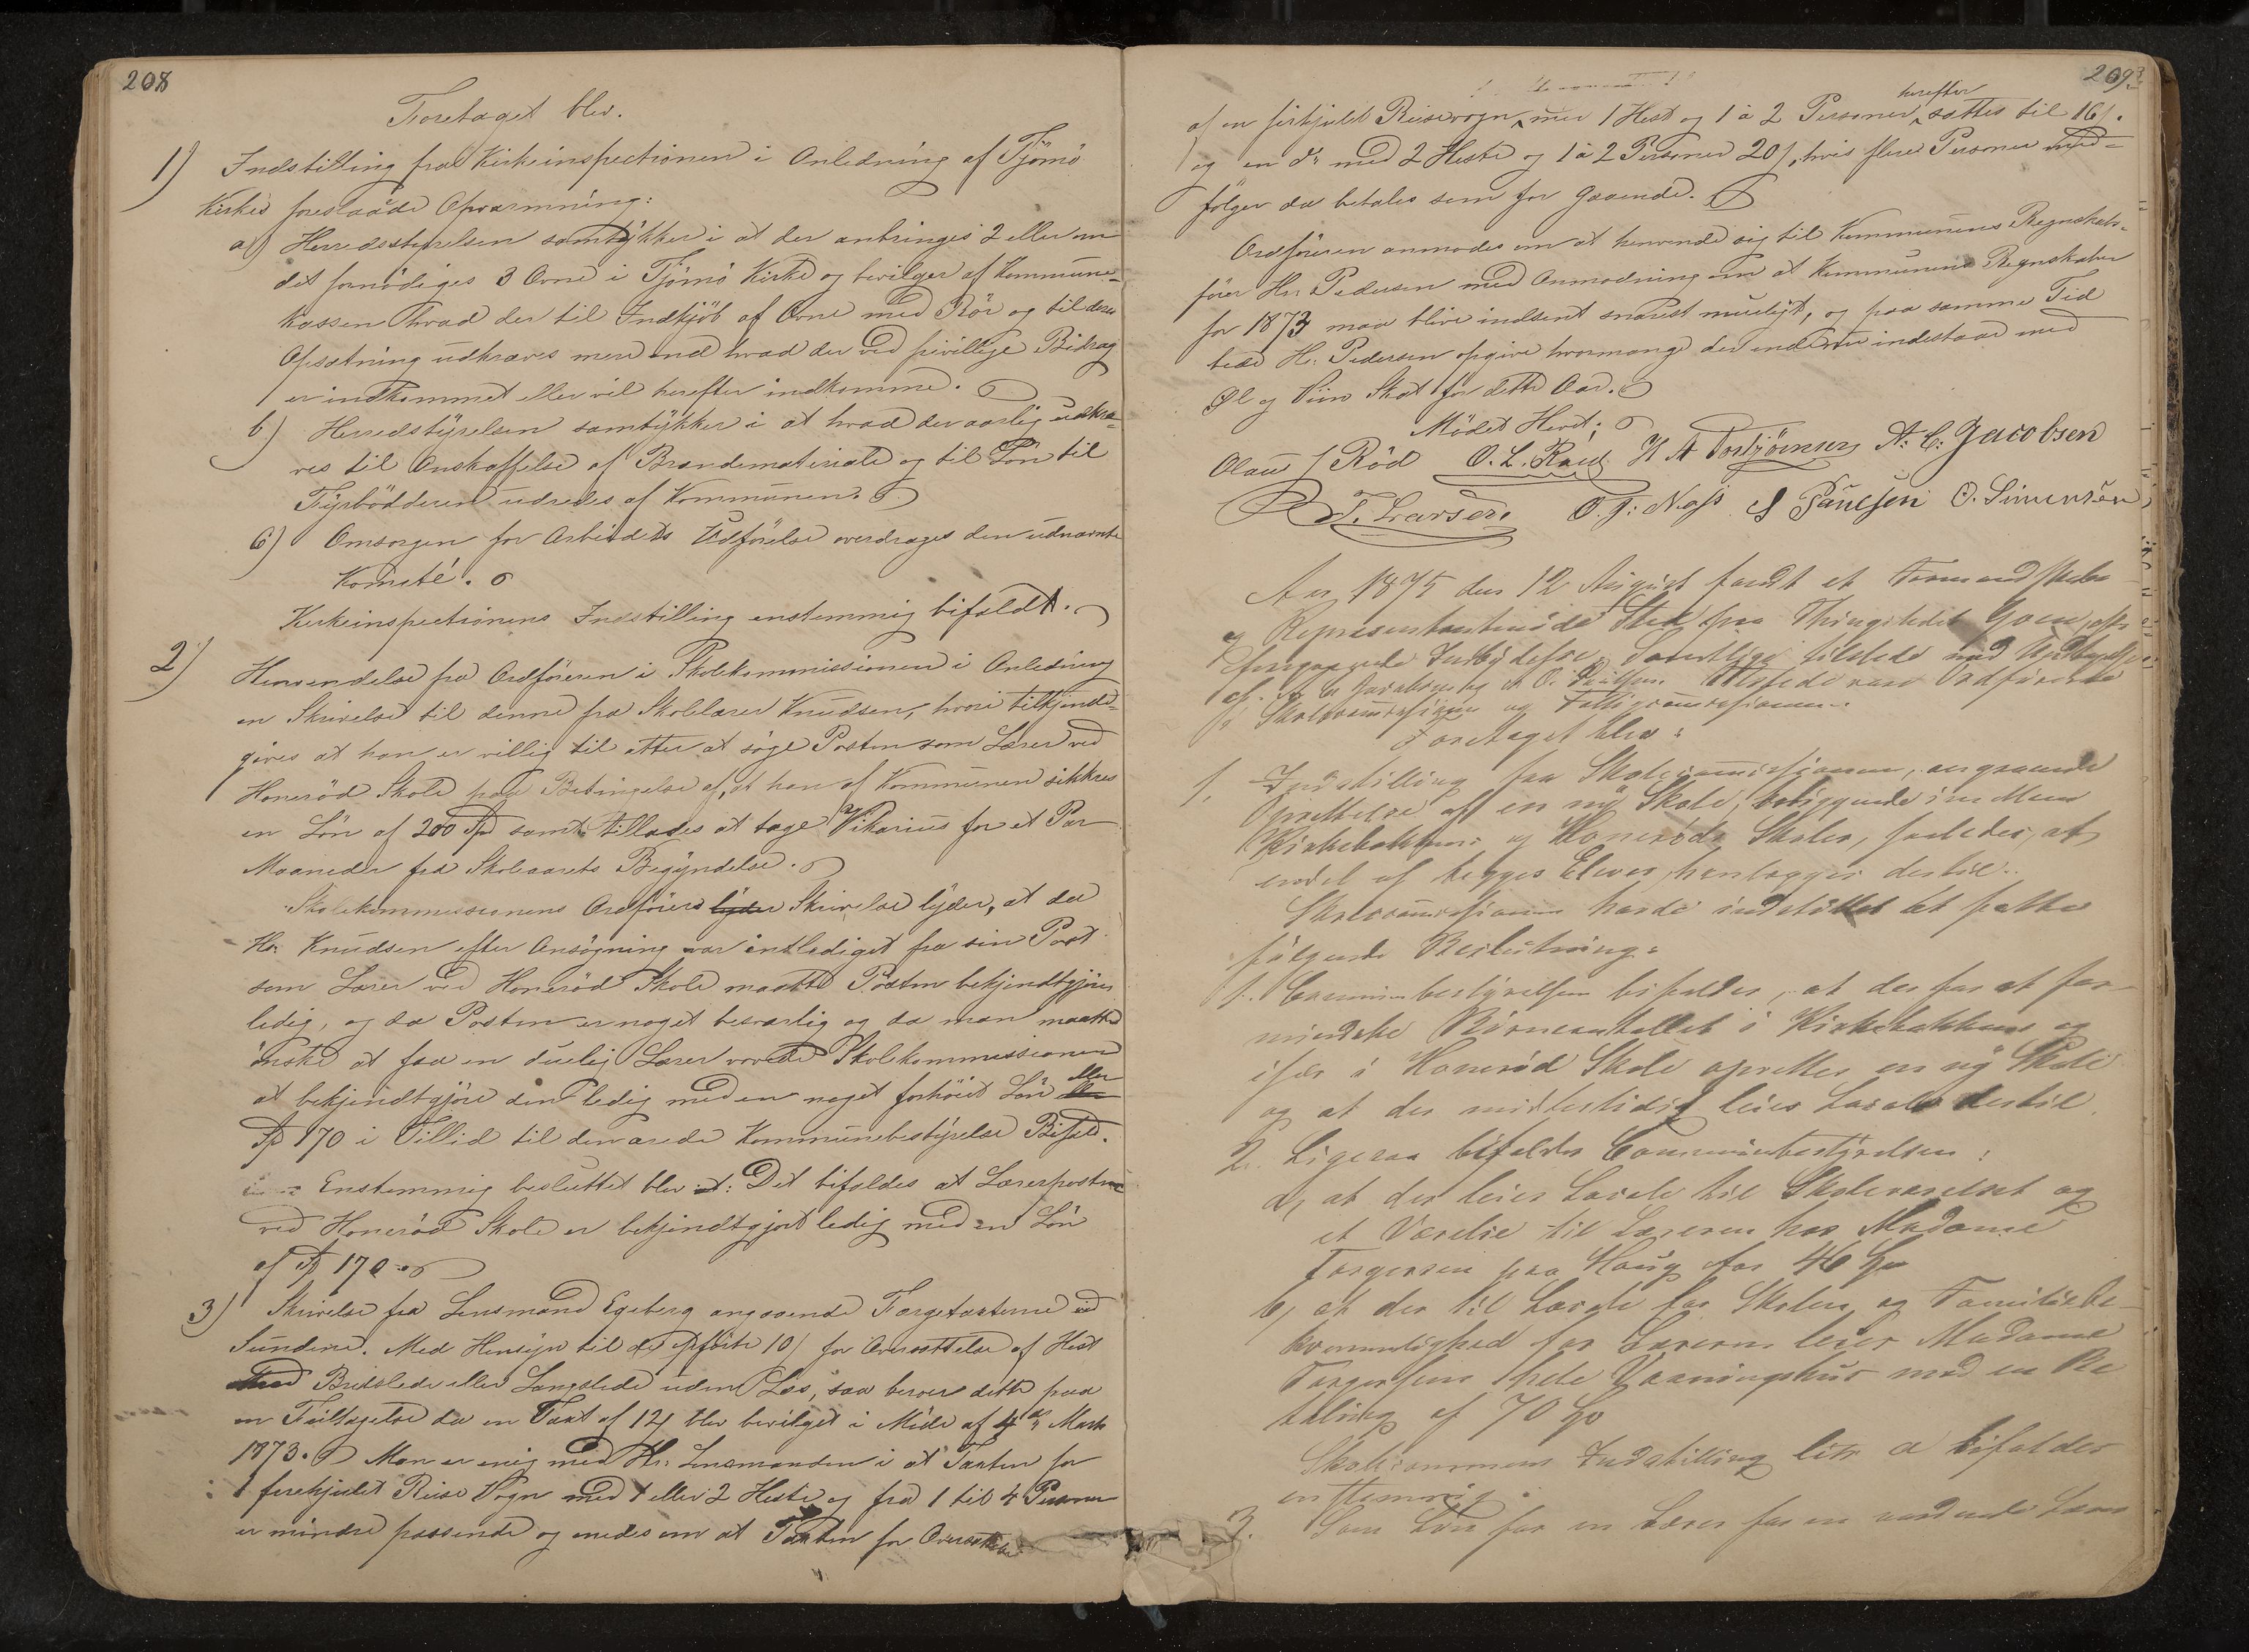 208
Foretaget blev.
1) Indstilling fra Kirkeinspectionen i Anledning af Tjömö
Kirkes foreslaaede Opvarmning:
a) Herredsstyrelsen samtykker i at der anbringes 2 eller om
det fornödiges 3 Ovne i Tjömö Kirke og bevilger af Kommune-
kassen hvad der til Indkjöb af Ovne med Rör og til deres
Opsætning udkræves mere end hvad der ved frivillige Bidrag
er indkommet eller vil herefter indkomme.
b) Herredstyrelsen samtykker i at hvad der aarlig udkræ-
ves til Anskaffelse af Brændemateriale og til Lön til
Fyrbödderen udredes af Kommunen.
c) Omsorgen for Arbeidets Udförelse overdrages den udnævnte
Komité.
Kirkeinspectionens Indstilling enstemmig bifaldt.
2) Henvendelse fra Ordföreren i Skolekommissionen i Anledning
en Skrivelse til denne fra Skolelærer Knudsen, hvori tilkjende-
gives at han er villig til atter at söge Posten som Lærer ved
Honeröd Skole paa Betingelse af, at han af Kommunen sikkres
en Lön af 200 Spd samt tillades at tage Vikarius for et Par
Maaneder fra Skoleaarets Begyndelse.
Skolekommissionens Ordförers lyder Skrivelse lyder, at da
Hr. Knudsen efter Ansögning var entlediget fra sin Post
som Lærer ved Honeröd Skole maatte Posten bekjendtgjöres
ledig, og da Posten er noget besværlig og da man maatte
önske at faa en duelig Lærer vovede Skolekommissionen
at bekjendtgjöre den ledig med en noget forhöiet Lön eller
Spd 170 i Tillid til den ærede Kommunebestyrelse Bifald.
Enstemmig besluttet blev: Det bifaldes at Lærerposten
ved Honeröd Skole er bekjendtgjort ledig med en Lön
af Spd 170.
3) Skrivelse fra Lensmand Egeberg angaaende Færgetaxterne ved
Sundene. Med Hensyn til de opförte 10 / for Oversættelse af Hest
med Bredslede eller Langslede uden Læs, saa beroer dette paa
en Feiltagelse da en Taxt af 12 / blev bevilget i Möde af 4de Marts
1873. Man er enig med Hr. Lensmanden i at Taxten for
1 firehjulet Reise Vogn med 1 eller 2 Heste og fra 1 til 4 Personer
er mindre passende og enedes om at Taxten for Oversættelse
209
herefter
af en firhjulet Reisevogn med 1 Hest og 1 à 2 Personer sættes til 16 /.
og en do med 2 Heste og 1 à 2 Personer 20 /, hvis flere Personer med-
fölger da betales som for gaaende.
Ordföreren anmodes om at henvende sig til Kommunens Regnskabs-
förer Hr. Pedersen med Anmodning om at Kommunens Regnskaber
for 1873 maa blive indsent snarest mueligt, og paa samme Tid
bede Hr. Pedersen opgive hvormange der endnu indestaar med
Øl og Viin Skat for dette Aar.
Mödet Hevet;
Olaus J Röd O. L. Röed H A Torbjörnsen A. C. Jacobsen
T. Larsen O. J. Næss S Paulsen O. Simensen
Aar 1875 den 12 August holdt et Formandskabs
og Repræsentantmöde Sted paa Thingstedet Goen, efter
foregaaende Indbydelse. Samtlige tilstede med Undtagelse
af A. C. Jacobsen og O. Paulsen. Tilstede vare Ordförerne
f. Skolecommissionen og Fattigcommissionen.
Foretaget blev:
1. Indstilling fra Skolecommissionen, angaaende
Oprettelse af en ny Skole, beliggende imellem
Kirkebakkens og Honeröds Skoler, saaledes, at
endel af begges Elever henlægges dertil.
Skolecommissionen havde indstillet at fatte
fölgende Beslutning:
1. Communebestyrelsen bifalder, at der for at for-
mindske Börneantallet i Kirkebakkens og
især i Honeröd Skole oprettes en ny Skole
og at der midlertidig leies Locale dertil.
2. Ligesaa bifalder Communebestyrelsen:
a, at der leies Locale til Skoleværelset og
et Værelse til Læreren hos Madame
Torgersen paa Haug for 46 Spd
b, at der til Locale for Skolen og Familiebe-
kvemmelighed for Læreren leies Madame
Torgersens hele Vaaningshus med en Be
taling af 70 Spd
Skolecommissionens Indstilling litr a bifaldes
enstemmig.
3. Som Lön for en Lærer for en